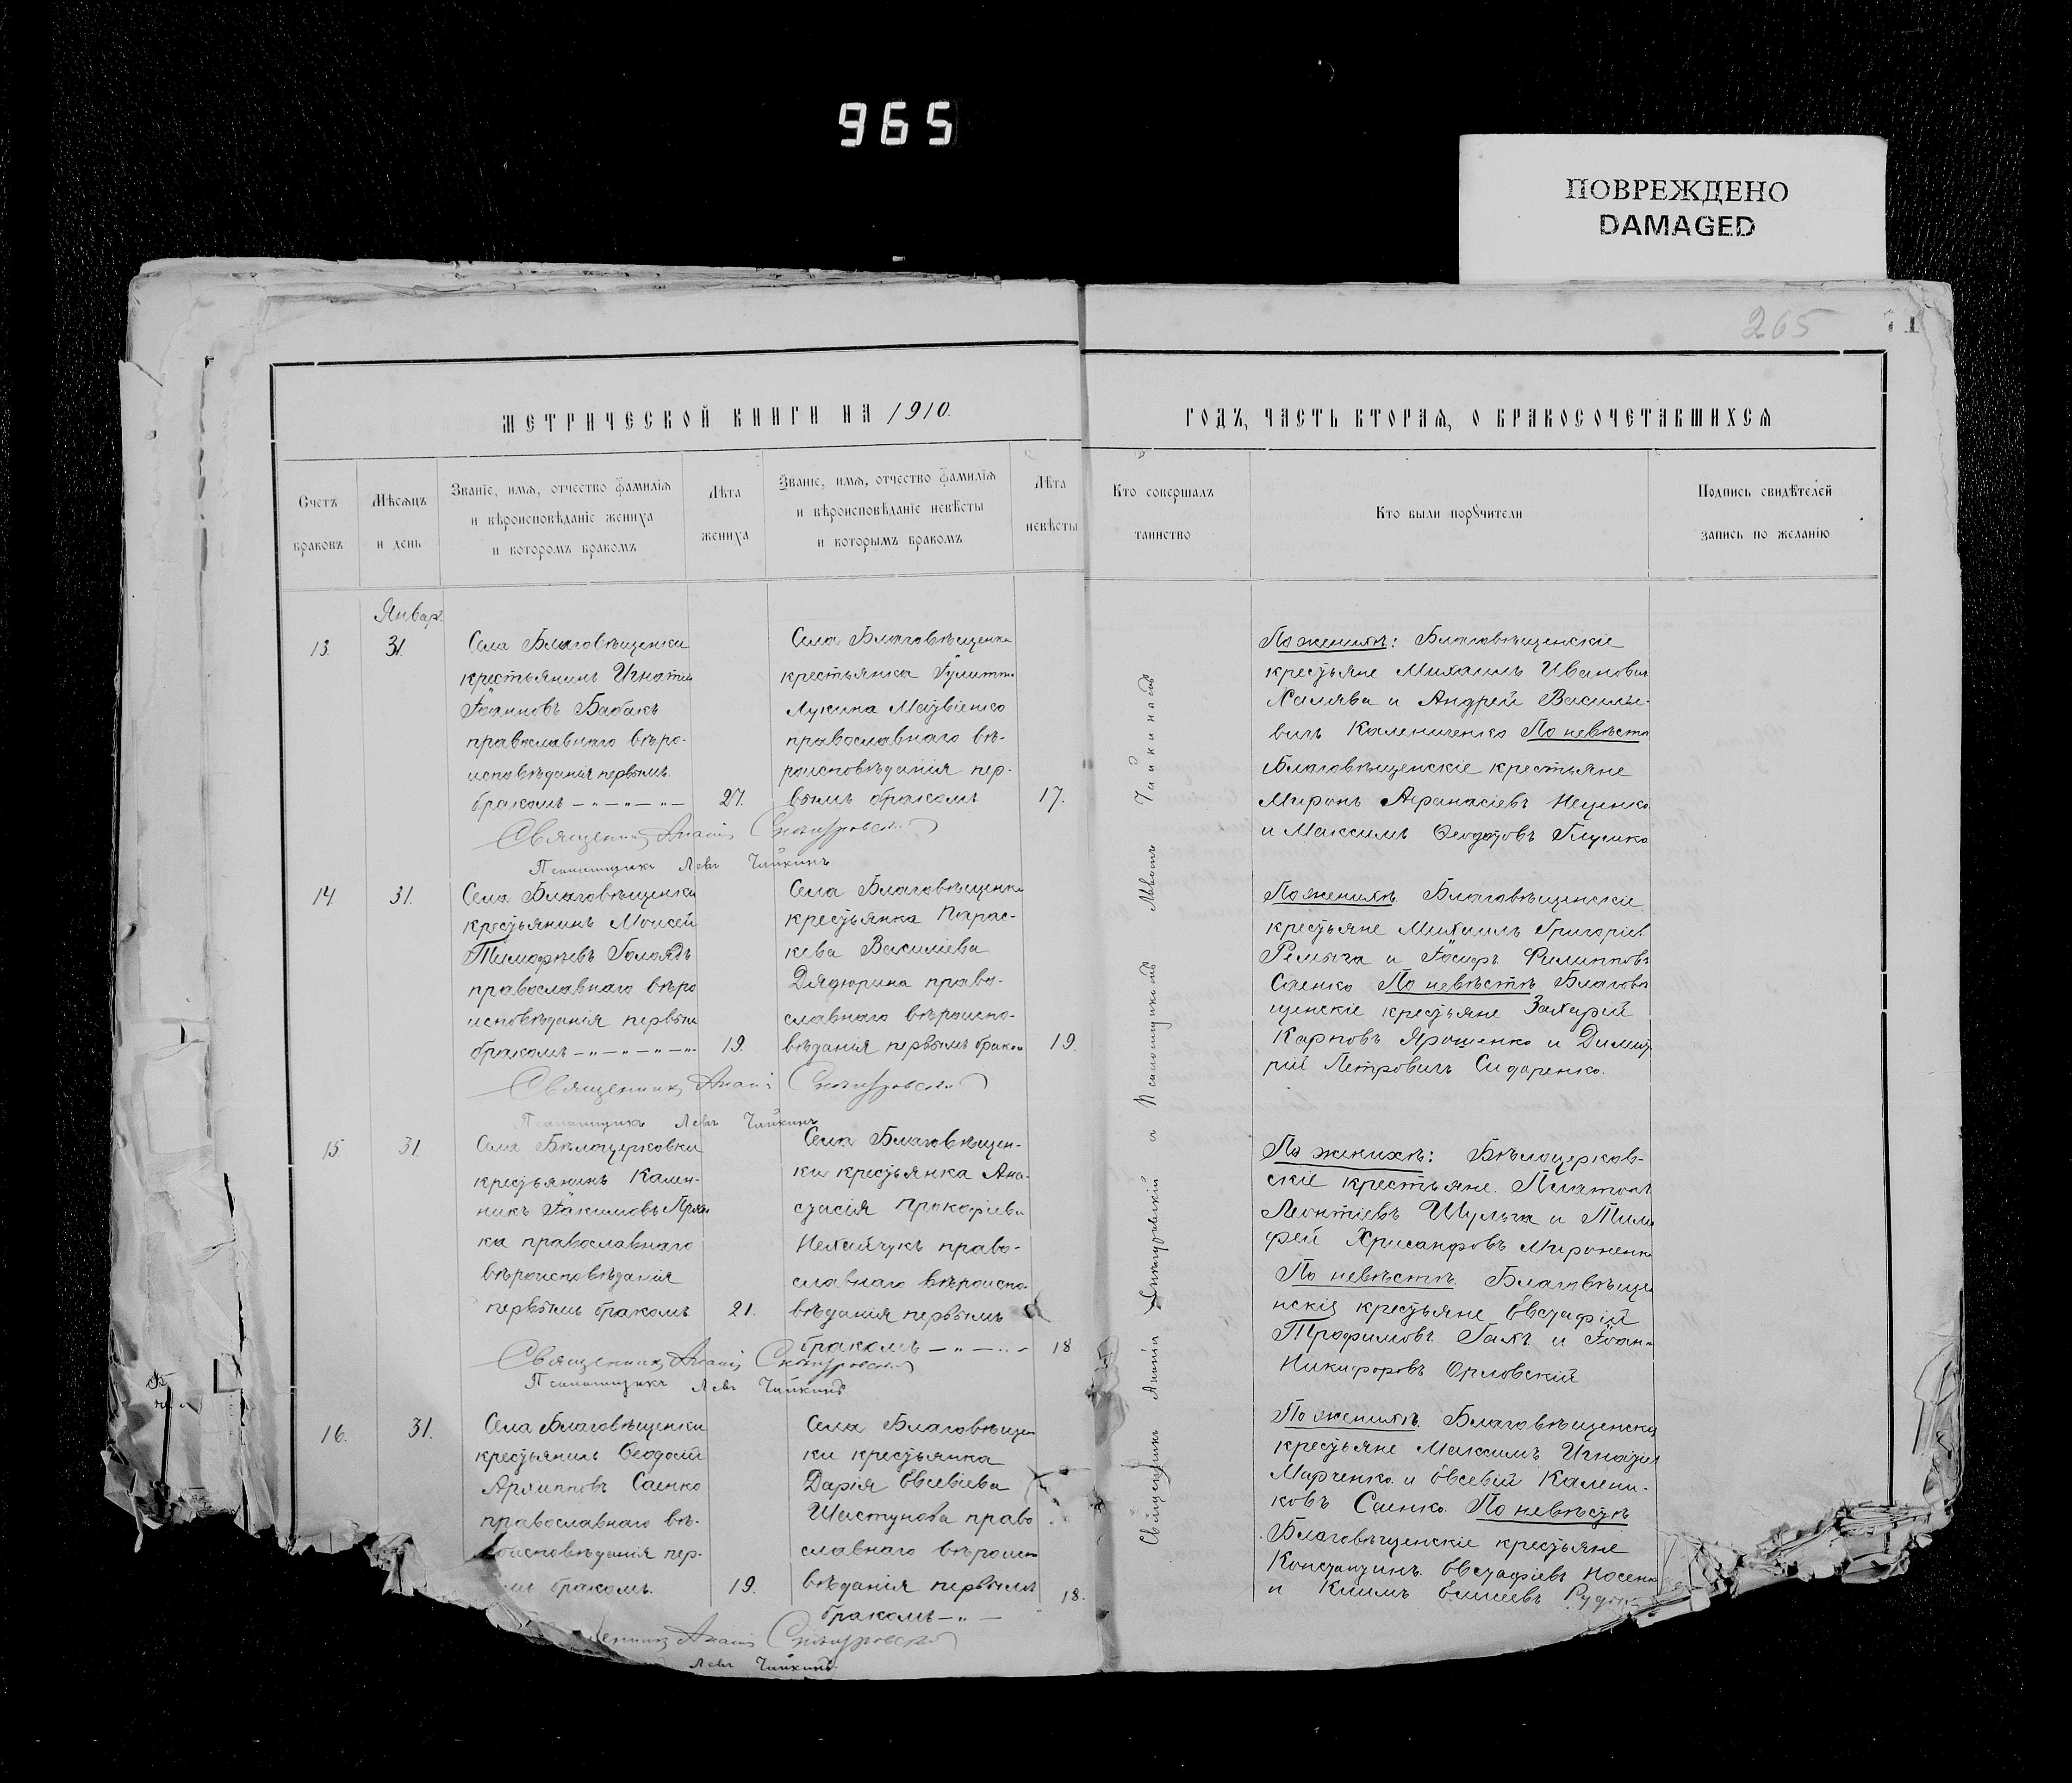 965
ПОВРЕЖДЕНО
DAMAGED
265
71
МЕТРИЧЕСКОЙ КНИГИ НА 1910.
ГОДЪ, ЧАСТЬ ВТОРАЯ, О БРАКОСОЧЕТАВШИХСЯ
Счетъ
браковъ
Мѣсяцъ
и день
Званіе, имя, отчество фамилія
и вѣроисповѣданіе жениха
и которомъ бракомъ
Лѣта
жениха
Званіе, имя, отчество фамилія
и вѣроисповѣданіе невѣсты
и которымъ бракомъ
Лѣта
невѣсты
Кто совершалъ
таинство
Кто были поручители
Подпись свидѣтелей
запись по желанію
Январ.
13.
31.
Села Благовѣщенки
крестьянинъ Игнатій
Іоанновъ Бабакъ
православнаго вѣро-
исповѣданія первымъ
бракомъ
27.
Села Благовѣщенки
крестьянка Іулитта
Лукина Матвіенко
православнаго вѣ-
роисповѣданія пер-
вымъ бракомъ
17.
По женихѣ: Благовѣщенскіе
крестьяне Михаилъ Ивановъ
Халява и Андрей Василье-
вичъ Калениченко По невѣстѣ
Благовѣщенскіе крестьяне
Миронъ Афанасіевъ
и Максимъ Ѳеодотовъ
Священникъ Ананій
Псаломщикъ Левъ Чайкинъ
14.
31.
Села Благовѣщенки
крестьянинъ Моисей
Тимофѣевъ
православнаго вѣро
исповѣданія первым
бракомъ
19.
Села Благовѣщенки
крестьянка Парас-
кева Василіева
Дядюрина право-
славнаго вѣроиспо-
вѣданія первымъ браком
19.
По женихѣ Благовѣщенскіе
крестьяне Михаилъ Григоріев.
и Іосифъ Филипповъ
Саенко По невѣстѣ Благовѣ
щенскіе крестьяне Захарій
Карповъ Ярошенко и Димит
рій Петровичъ Сидоренко.
Священникъ Ананій
Псаломщикъ Левъ Чайкинъ
15
31.
Села Бѣлоцерковки
крестьянинъ Кален-
никъ Іакимовъ
ка православнаго
вѣроисповѣданія
первымъ бракомъ
21.
Села Благовѣщен-
ки крестьянка Ана-
стасія Прокофіева
Нехайчукъ право-
славнаго вѣроиспо-
вѣданія первымъ
бракомъ
18
По женихѣ: Бѣлоцерков-
скіе крестьяне Платонъ
Леонтіевъ Шульга и Тимо
фей Хрисанфовъ Мироненко
По невѣстѣ Благовѣще
нскіе крестьяне Евстафій
Трофимовъ Галъ и Іоан-
Никифоровъ Орловскій
Священникъ Ананій
Псаломщикъ Левъ Чайкинъ
16.
31.
Села Благовѣщенки
крестьянинъ Ѳеодосій
Архипповъ Саенко
православнаго вѣ-
роисповѣданія пер-
бракомъ.
19.
Села Благовѣщен
ки крестьянка
Дарія Евсевіева
Шастунова право
славнаго вѣроисп
вѣданія первымъ
бракомъ
18.
По женихѣ Благовѣщенскіе
крестьяне Максимъ Игнатіев
Марченко и Евсевій Калени-
ковъ Саенко. По невѣстѣ
Благовѣщенскіе крестьяне
Константинъ Евстафіевъ Носенко
и Климъ Елисеевъ
Ананій
Левъ Чайкинъ
Священникъ Ананій
съ Псаломщикомъ Львомъ Чайкинымъ